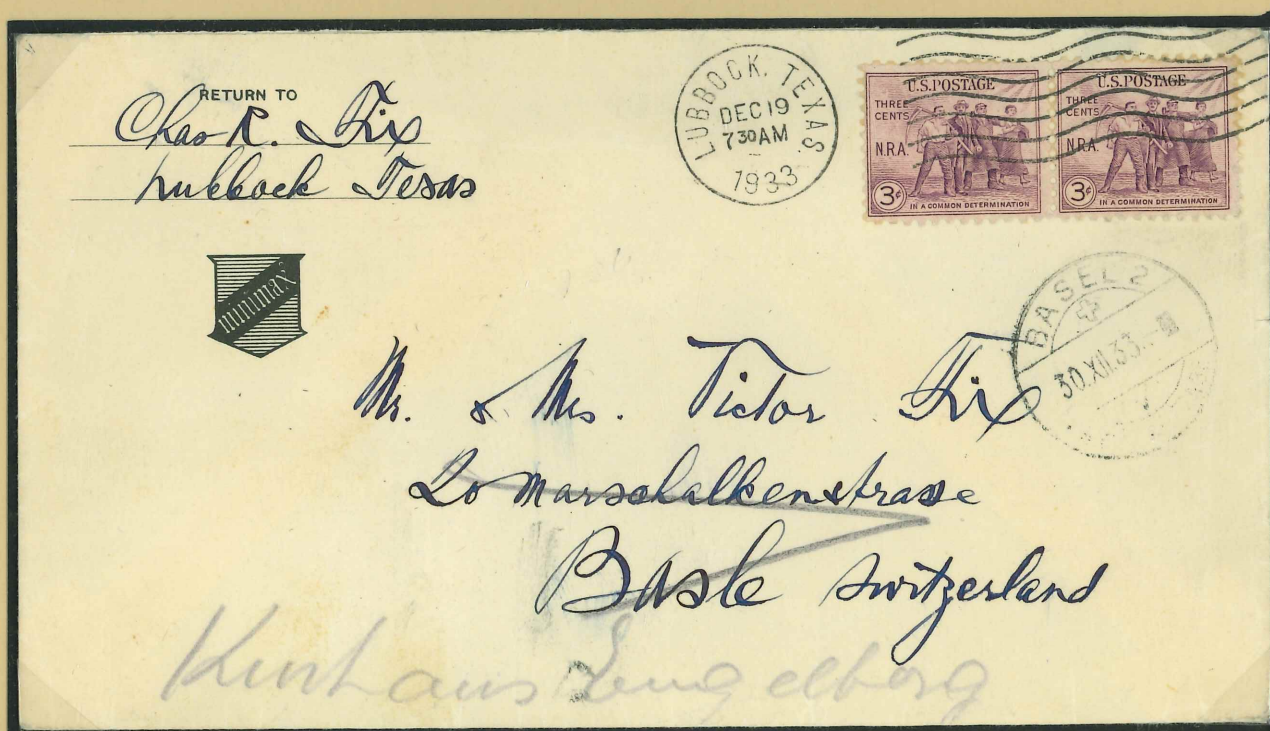 RETURN TO
Chas R. Fix
Lubbock Texas
minimax
LUBBOCK, TEXAS.
DEC 19
7 30 AM
1933
U.S. POSTAGE
THREE CENTS
N.R.A.
3¢
IN A COMMON DETERMINATION
U.S. POSTAGE
THREE CENTS
N.R.A.
3¢
IN A COMMON DETERMINATION
BASEL 2
30.XII.33.
Mr. & Mrs. Victor Fix
20 Marschalkenstrasse
Basle Switzerland
Kurhaus Engelberg